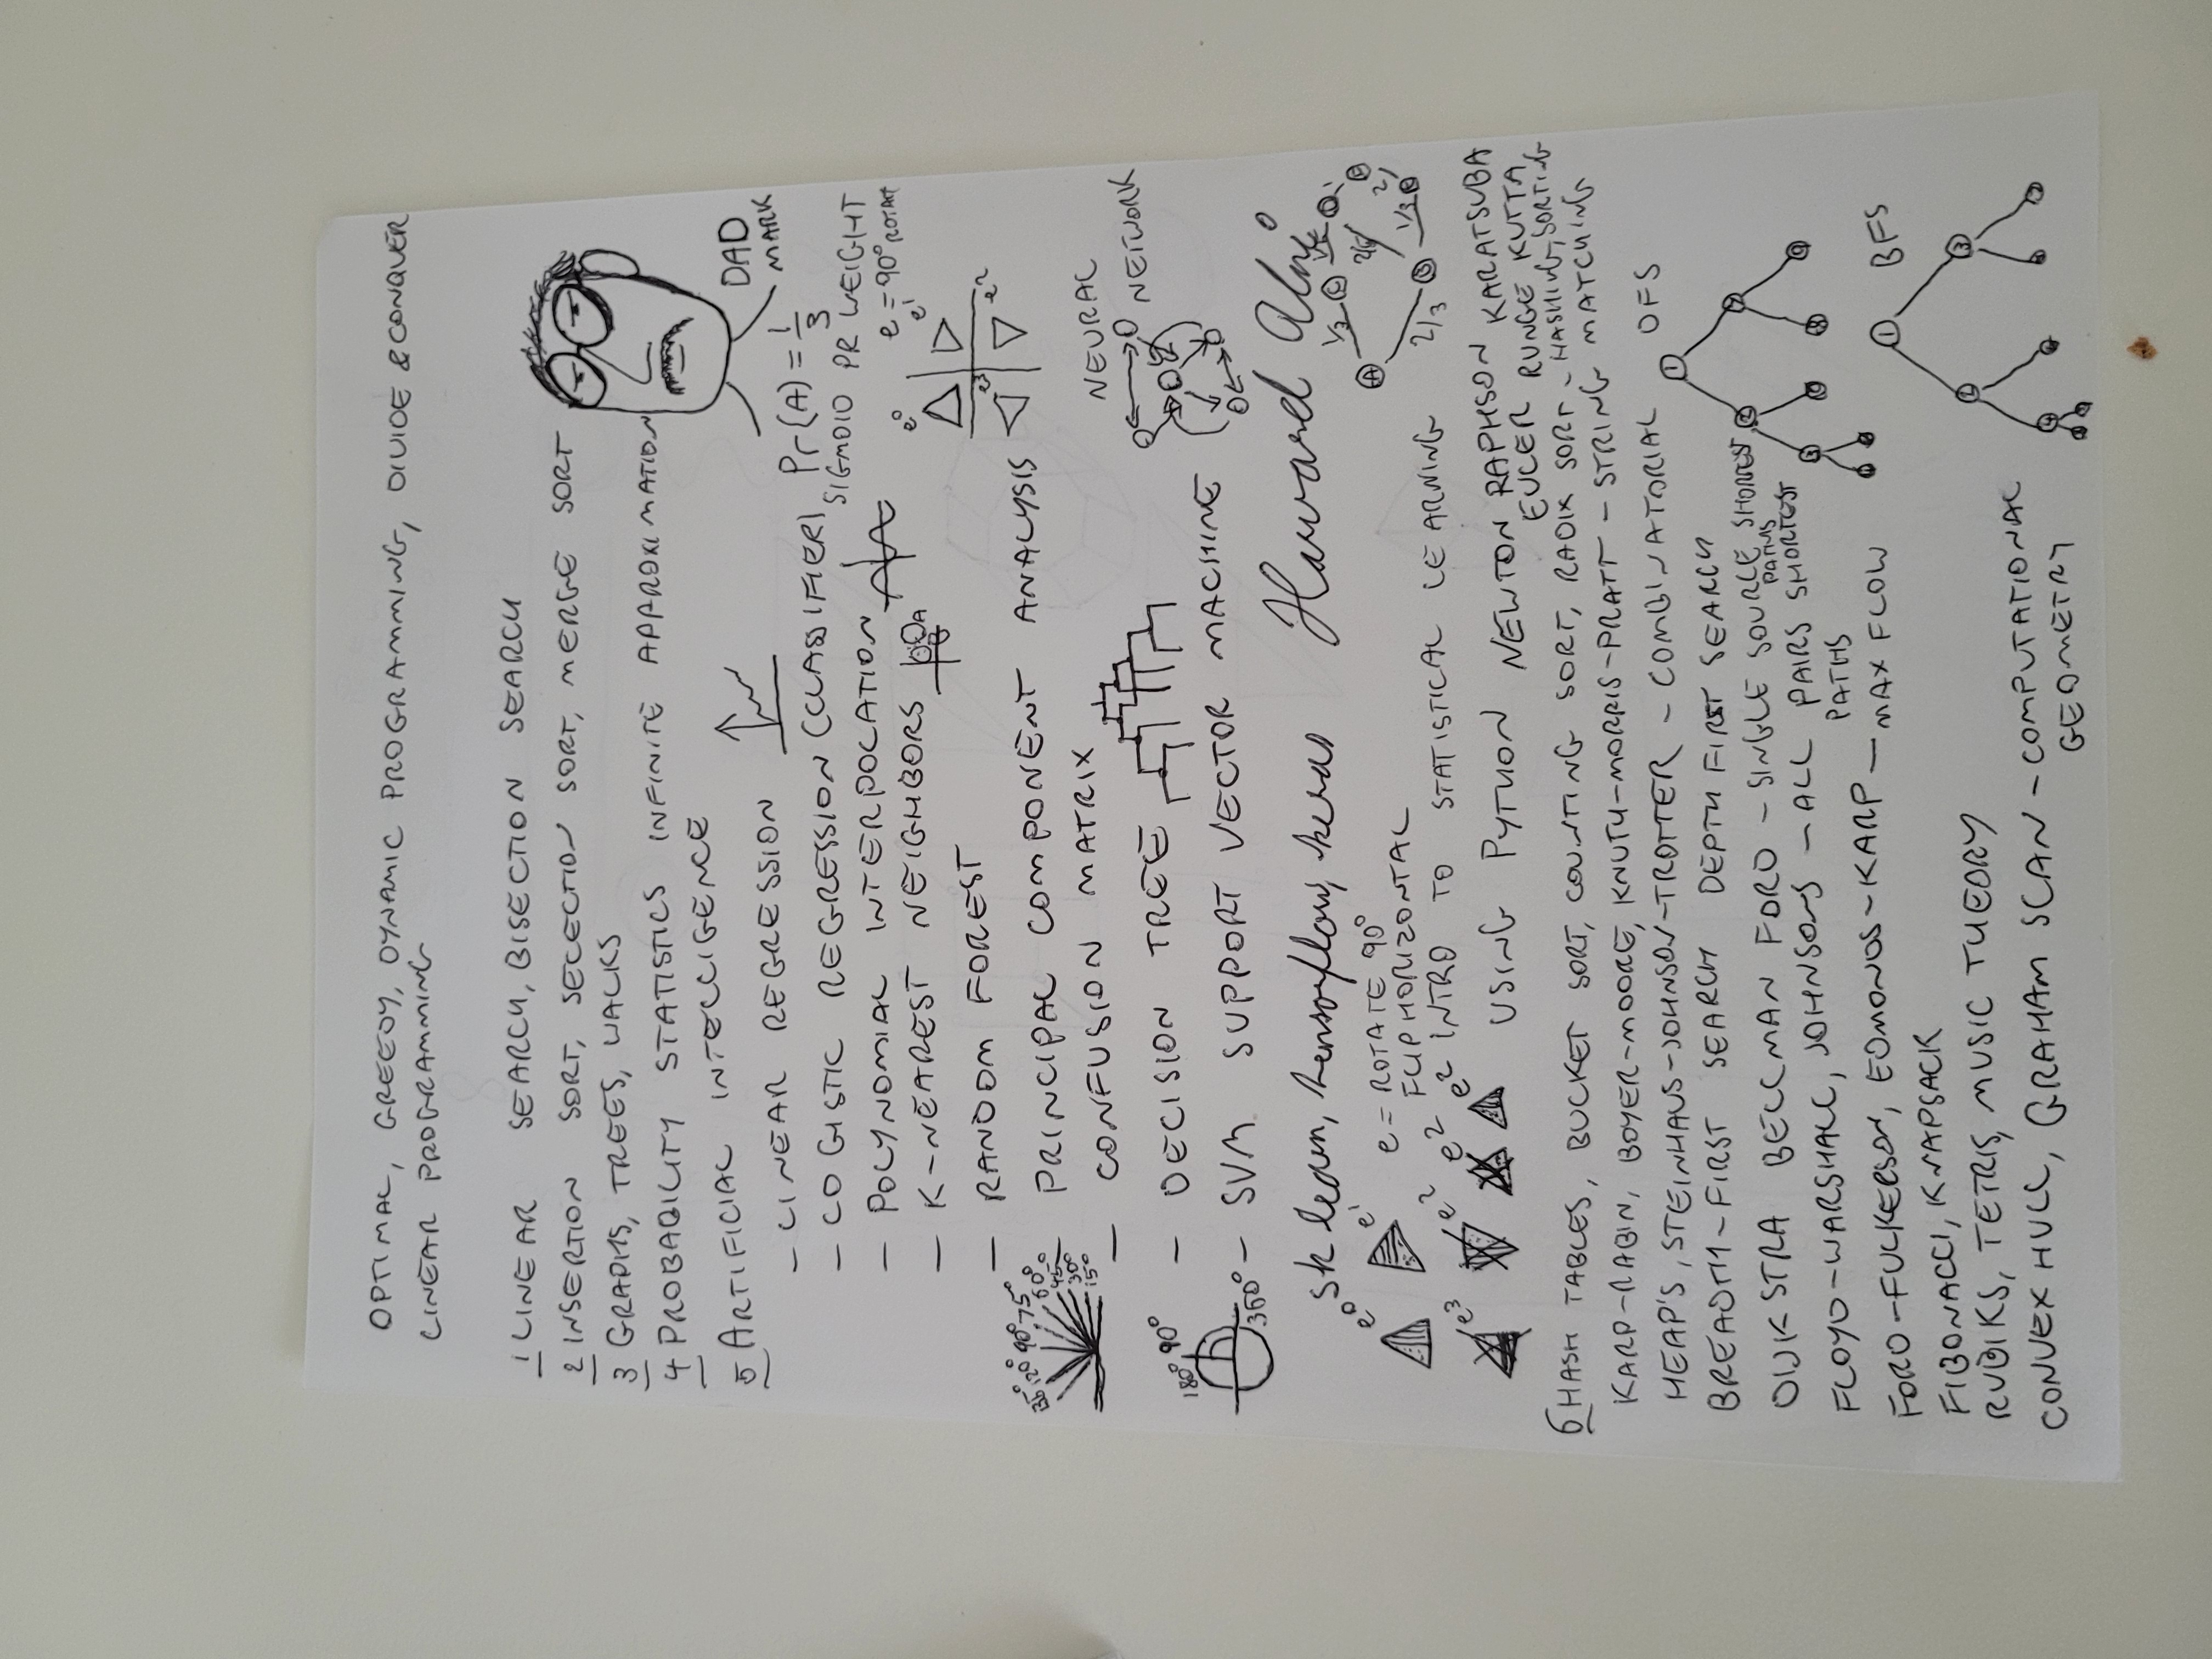 OPTIMAL, GREEDY, DYNAMIC PROGRAMMING, DIVIDE & CONQUER
LINEAR PROGRAMMING
1 LINEAR SEARCH, BISECTION SEARCH
2 INSERTION SORT, SELECTION SORT, MERGE SORT
3 GRAPHS, TREES, WALKS
4 PROBABILITY STATISTICS INFINITE APPROXIMATION
5 ARTIFICIAL INTELLIGENCE
DAD
MARK
- LINEAR REGRESSION
- LOGISTIC REGRESSION (CLASSIFIER)
Pr(A) = 1/3
SIGMOID PR WEIGHT
- POLYNOMIAL INTERPOLATION
e = 90° ROTATE
- K-NEAREST NEIGHBORS
A
B
e⁰
e¹
e³
e²
- RANDOM FOREST
135° 120° 90° 75° 60° 45° 30° 15°
- PRINCIPAL COMPONENT ANALYSIS
- CONFUSION MATRIX
NEURAL
NETWORK
- DECISION TREE
180° 90°
360°
- SVM SUPPORT VECTOR MACHINE
sk learn, tensorflow, keras
Harvard
e⁰
e¹
e = ROTATE 90°
FLIP HORIZONTAL
A
1/3
C
2/3
1/3
2
e³
e²
e²
e²
INTRO TO STATISTICAL LEARNING
USING PYTHON NEWTON RAPHSON KARATSUBA
EULER RUNGE KUTTA
6 HASH TABLES, BUCKET SORT, COUNTING SORT, RADIX SORT - HASHING, SORTING
KARP-RABIN, BOYER-MOORE, KNUTH-MORRIS-PRATT - STRING MATCHING
HEAP'S, STEINHAUS-JOHNSON-TROTTER - COMBINATORIAL
DFS
1
BREADTH-FIRST SEARCH DEPTH FIRST SEARCH
2
7
DIJKSTRA BELLMAN FORD - SINGLE SOURCE SHORTEST
PATHS
3
8
9
FLOYD-WARSHALL, JOHNSONS - ALL PAIRS SHORTEST
PATHS
FORD-FULKERSON, EDMONDS-KARP - MAX FLOW
BFS
1
FIBONACCI, KNAPSACK
2
3
RUBIKS, TETRIS, MUSIC THEORY
CONVEX HULL, GRAHAM SCAN - COMPUTATIONAL
GEOMETRY
4